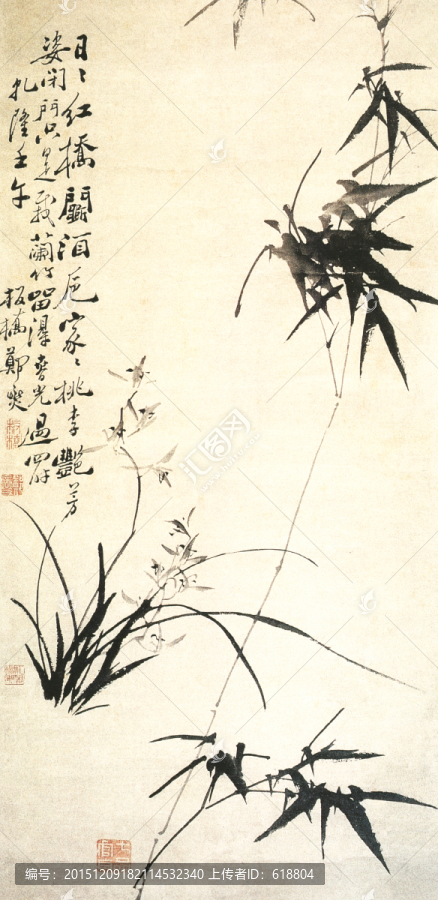 日〻紅橋鬭酒卮家〻桃李艷芳
姿閉門只是栽蘭竹留得春光過四時
乾隆壬午
板橋鄭燮
汇图网
编号: 20151209182114532340 上传者ID: 618804